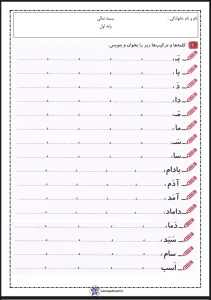 نام و نام خانوادگی:
بسمه تعالی
پایه اول
۱ کلمه‌ها و ترکیب‌ها زیر را بخوان و بنویس.
بَـ ، ، ، ،
با، ، ، ،
دَ ، ، ، ،
دا، ، ، ،
مَـ ، ، ، ،
ما، ، ، ،
سَـ ، ، ، ،
سا، ، ، ،
بادام، ، ، ،
آدَم ، ، ، ،
آمَد ، ، ، ،
داماد، ، ، ،
دَما، ، ، ،
سَبَد ، ، ، ،
سام ، ، ، ،
اسب